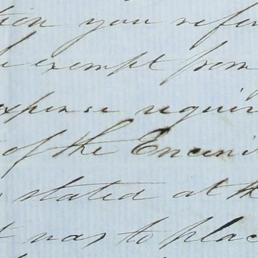 tion you refer
be exempt from
expense requir
of the Encini
stated at th
it was to plac